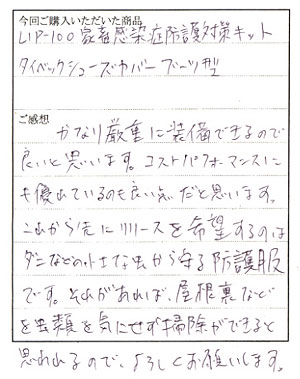 今回ご購入いただいた商品
LIP-100 家畜感染症防護対策キット
タイベックシューズカバー ブーツ型
ご感想
かなり厳重に装備できるので
良いと思います。コストパフォーマンスに
も優れているのも良い点だと思います。
これから先にリリースを希望するのは
ダニなどの小さな虫から守る防護服
です。それがあれば、屋根裏など
を虫類を気にせず掃除ができると
思われるので、よろしくお願いします。